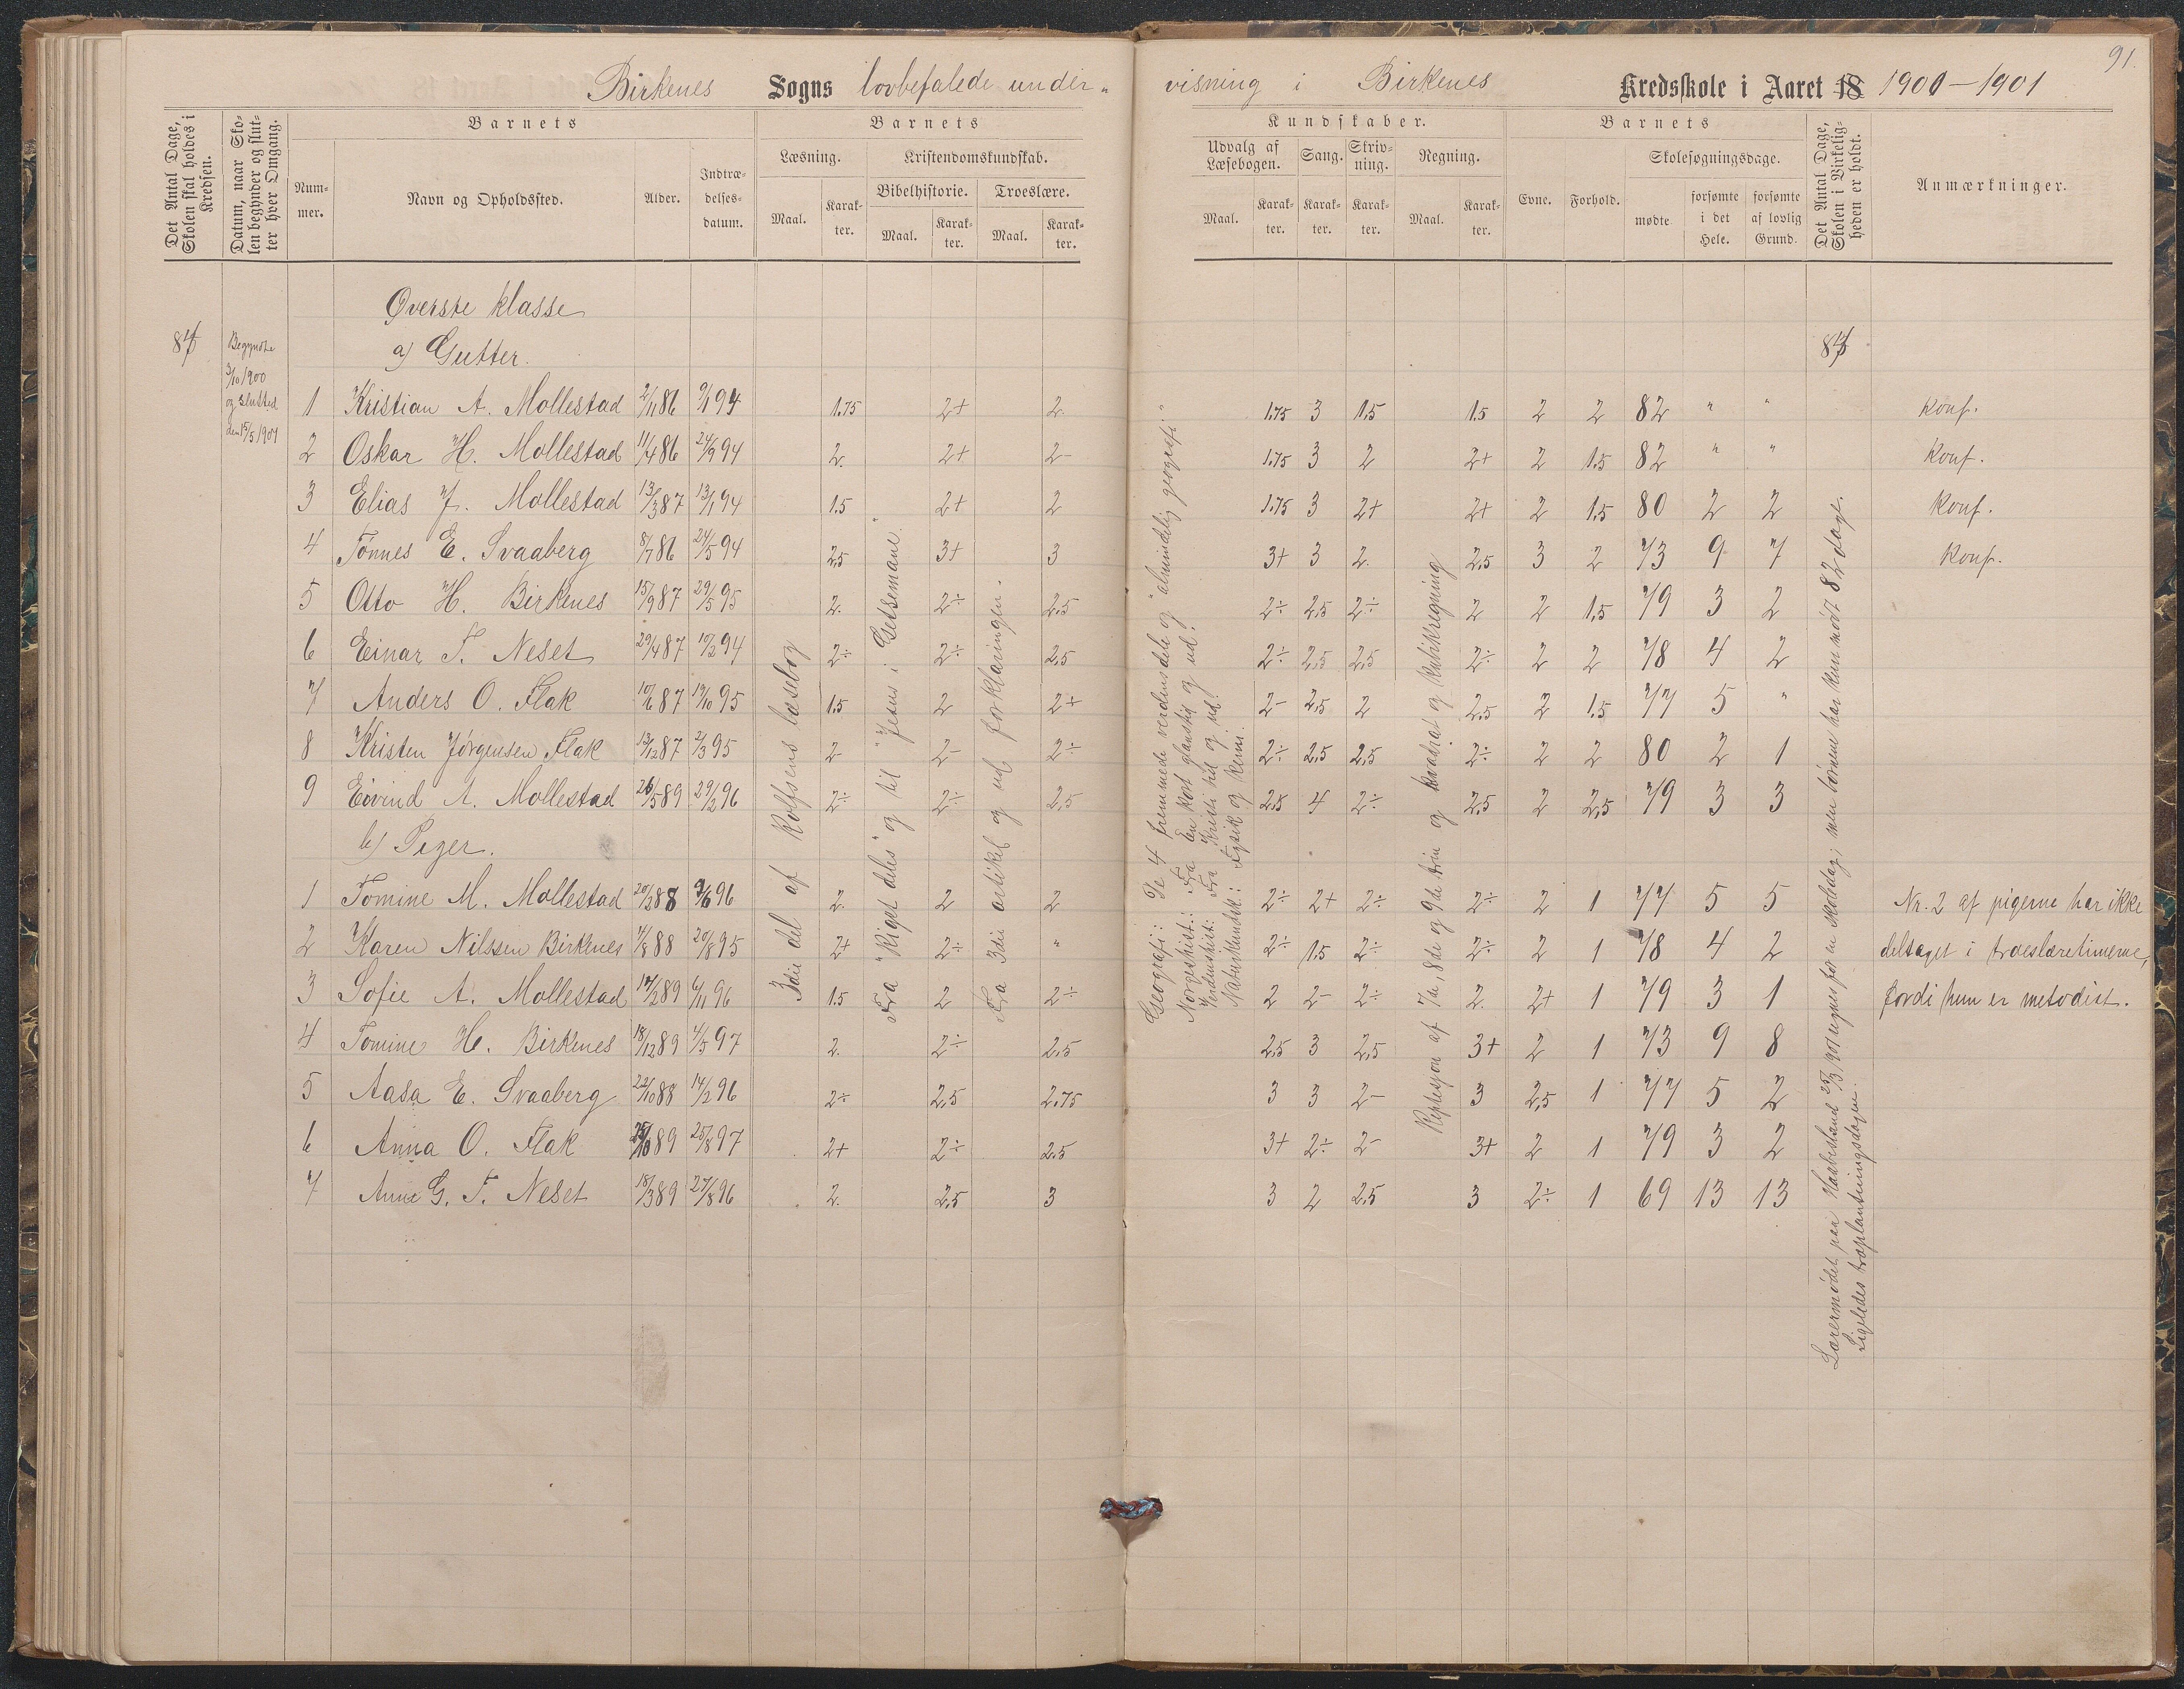 91.
Birkenes Sogns lovbefalede under-
visning i Birkenes Kredsskole i Aaret 18 1900-1901
Det Antal Dage, Skolen skal holdes i Kredsen.
Datum, naar Skolen begynder og slutter hver Omgang.
Barnets
Nummer.
Navn og Opholdssted.
Alder.
Indtrædelsesdatum.
Barnets
Læsning.
Maal.
Karakter.
Kristendomskundskab.
Bibelhistorie.
Maal.
Karakter.
Troeslære.
Maal.
Karakter.
Kundskaber.
Udvalg af Læsebogen.
Maal.
Karakter.
Sang.
Karakter.
Skrivning.
Karakter.
Regning.
Maal.
Karakter.
Barnets
Evne.
Forhold.
Skolesøgningsdage.
mødte
forsømte i det Hele.
forsømte af lovlig Grund.
Det Antal Dage, Skolen i Virkeligheden er holdt.
Anmærkninger.
Øverste klasse
a) Gutter.
Begyndte
3/10 1900
og slutted
den 15/5 1901
1 Kristian A. Mollestad 2/11 86 9/1 94 1.75 2+ 2. 1.75 3 1.5 1.5 2 2 82 " " Konf.
2 Oskar H. Mollestad 11/4 86 24/9 94 2. 2+ 2- 1.75 3 2 2+ 2 1.5 82 " " Konf.
3 Elias J. Mollestad 13/3 87 13/1 94 1.5 2+ 2 1.75 3 2+ 2+ 2 1.5 80 2 2 Konf.
4 Tønnes E. Svaaberg 8/7 86 24/5 94 2,5 3+ 3 3+ 3 2. 2.5 3 2 73 9 7 Konf.
5 Otto H. Birkenes 15/9 87 29/5 95 2. 2÷ 2.5 2÷ 2.5 2÷ 2 2 1.5 79 3 2
6 Einar T. Neset 29/4 87 10/2 94 2÷ 2÷ 2,5 2÷ 2,5 2,5 2÷ 2 2 78 4 2
7 Anders O. Flak 10/6 87 14/10 95 1.5 2 2+ 2- 2,5 2 2,5 2 1.5 77 5 "
8 Kristen Jørgensen Flak 13/12 87 2/3 95 2- 2- 2÷ 2÷ 2,5 2,5 2÷ 2 2 80 2 1
9 Eivind A. Mollestad 26/5 89 29/2 96 2÷ 2÷ 2,5 2,5 4 2÷ 2,5 2 2,5 79 3 3
b) Piger.
1 Tomine M. Mollestad 20/2 88 9/6 96 2. 2 2 2÷ 2+ 2÷ 2÷ 2 1 77 5 5 Nr. 2 af pigerne har ikke
2 Karen Nilssen Birkenes 7/8 88 20/8 95 2+ 2÷ " 2÷ 1.5 2÷ 2÷ 2 1 78 4 2 deltaget i troeslæretimerne,
3 Sofie A. Mollestad 14/2 89 6/11 96 1.5 2 2÷ 2 2- 2÷ 2. 2+ 1 79 3 1 fordi hun er metodist.
4 Tomine H. Birkenes 18/12 89 4/5 97 2. 2÷ 2.5 2,5 3 2,5 3+ 2 1 73 9 8
5 Aasa E. Svaaberg 22/10 88 14/2 96 2÷ 2,5 2.75 3 3 2- 3 2,5 1 77 5 2
6 Anna O. Flak 89 25/8 97 2+ 2÷ 2.5 3+ 2÷ 2- 3+ 2 1 79 3 2
7 Anne G. T. Neset 18/3 89 27/8 96 2. 2,5 3 3 2 2.5 3 2÷ 1 69 13 13
3die del af Rolfsens læsebog
Fra "Riget deles" og til "Jesus i Getsemane"
Fra 3die artikel og ud forklaringen.
Geografi: De 4 fremmede verdensdele og "almindelig geografi"
Norgeshist.: Fra En kort glanstid og ud.
Verdenshist.: Fra Kristi tid og ud.
Naturkundsk.: Fysik og kemi.
Repetisjon af 7de, 8de og 9de trin og kvadrat og kubikregning
Lærermødet paa Haabesland 25/3 1901 regnes for en skoledag; men børnene har kun mødt 82 dage.
Ligeledes træplantningsdagen.